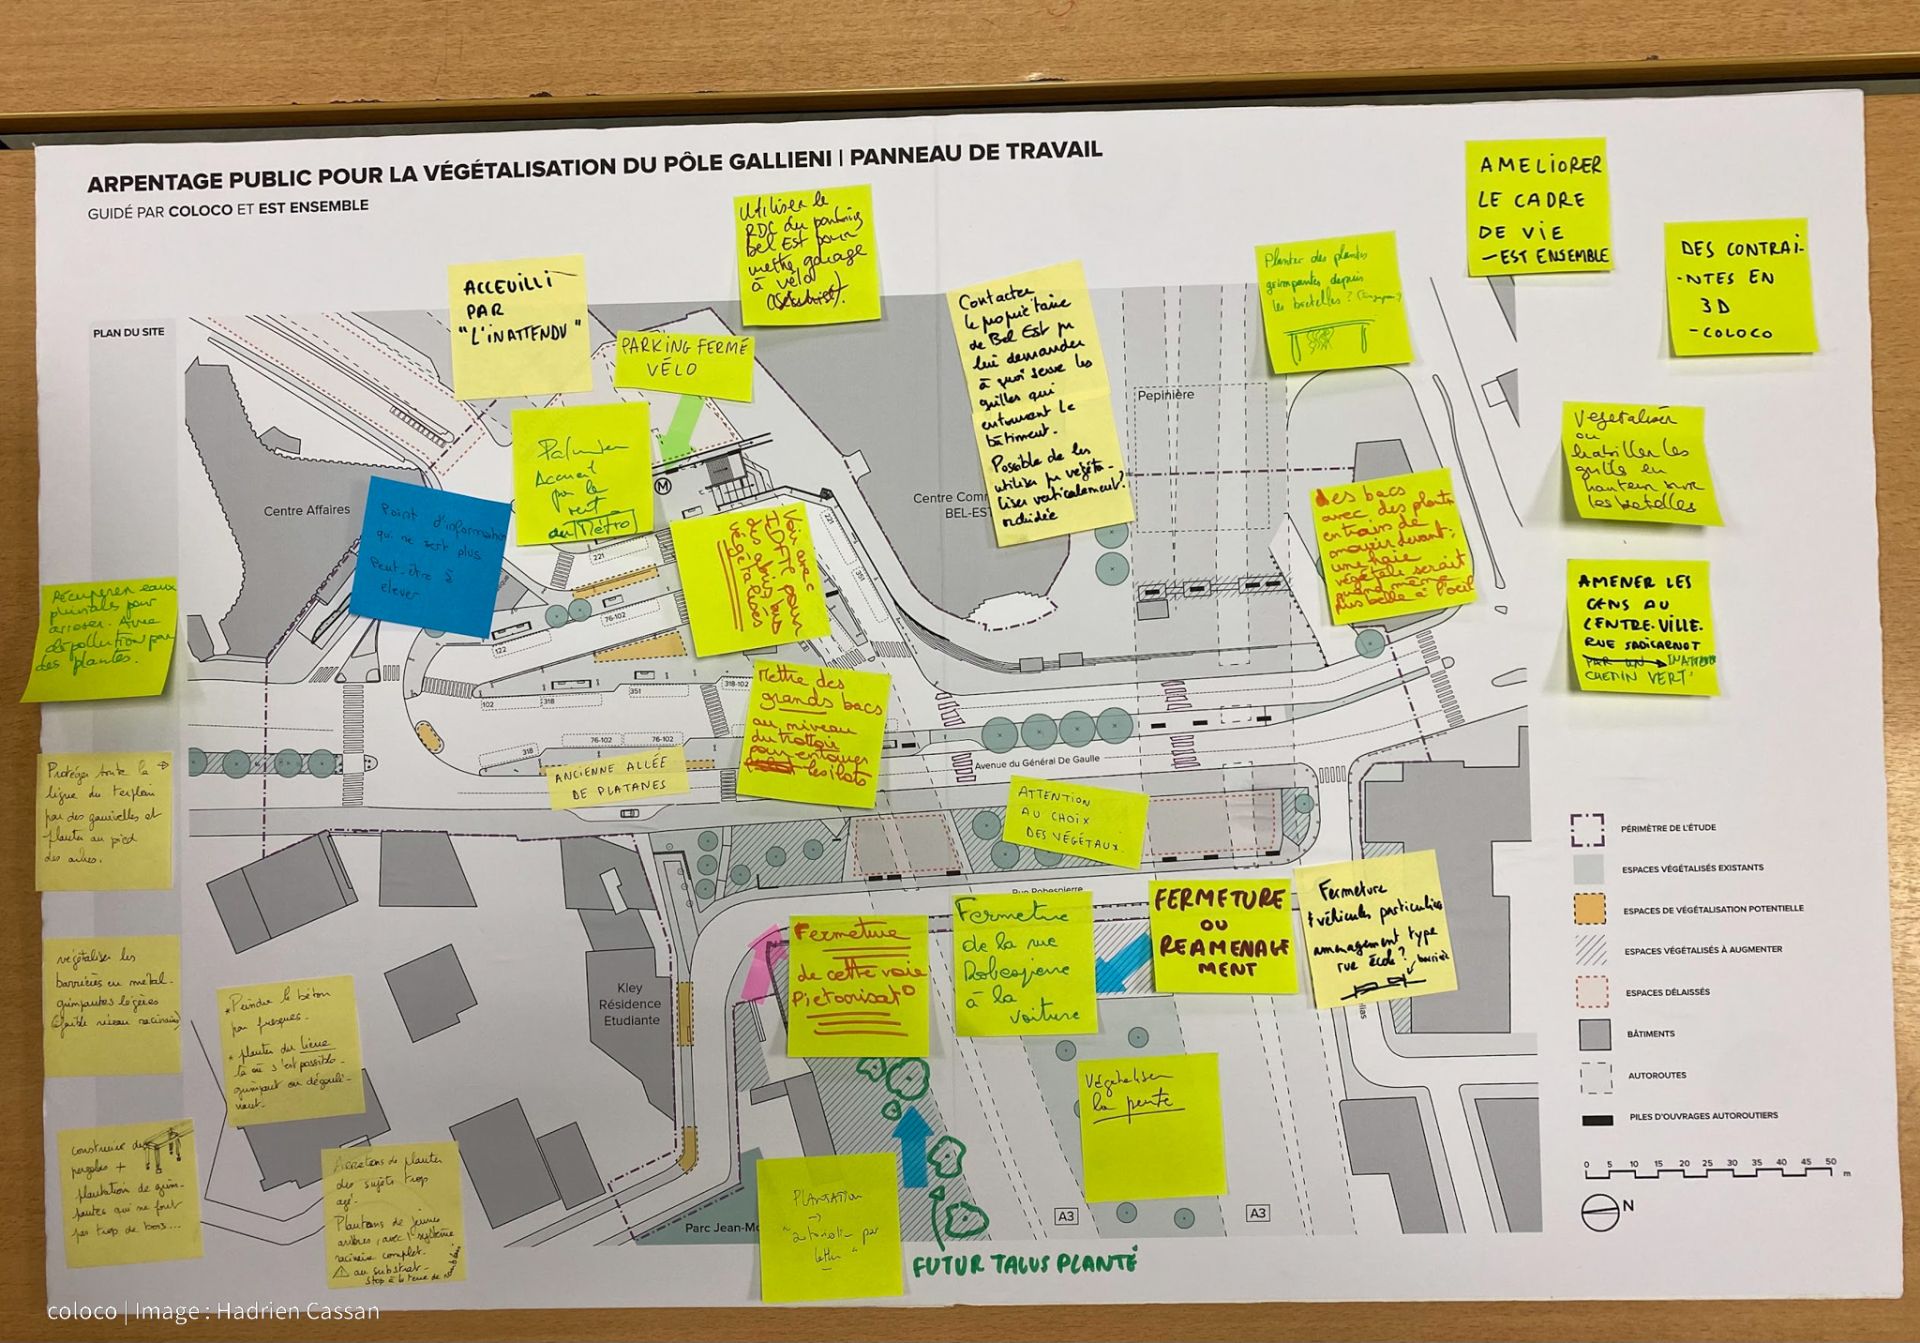 ARPENTAGE PUBLIC POUR LA VÉGÉTALISATION DU PÔLE GALLIENI | PANNEAU DE TRAVAIL
GUIDÉ PAR COLOCO ET EST ENSEMBLE
PLAN DU SITE
ACCEUILLI
PAR
"L'INATTENDU"
Utiliser le
RDC du parking
bel Est pour
mettre garage
à vélo
PARKING FERMÉ
VÉLO
Contacter
le propriétaire
de Bel Est pr
lui demander
à quoi serve les
grilles qui
entourent le
bâtiment.
Possible de les
utiliser pr végéta-
liser verticalement?
Planter des plantes
grimpantes depuis
les bretelles?
AMELIORER
LE CADRE
DE VIE
-EST ENSEMBLE
DES CONTRAI-
-NTES EN
3D
-COLOCO
Palmier
Accueil
par le
vert
du Métro
Point d'information
qui ne sert plus
Peut-être à
elever
Voir avec
IDFM pour
des abris bus
végétalisés
Des bacs
avec des plantes
en train de
mourir devant:
une haie
végétale serait
quand même
plus belle à l'oeil
Végétaliser
ou
habiller les
grille en
hauteur sur
les bretelles
AMENER LES
GENS AU
CENTRE-VILLE.
RUE SADICARNOT
PAR UN
CHEMIN VERT
Récuperer eaux
pluviales pour
arroser. Avec
dépollution par
des plantes.
Mettre des
grands bacs
au niveau
du trottoir
pour entourer
les ilots
ANCIENNE ALLÉE
DE PLATANES
ATTENTION
AU CHOIX
DES VÉGÉTAUX.
Protéger toute la
ligne du terplein
par des ganivelles et
planter au pied
des arbres.
végétaliser les
barrières en métal.
grimpantes légères
(faible niveau racinaire)
* Peindre le béton
par fresques.
* planter du lierre
là où c'est possible.
grimpant ou dégouli-
nant.
construire des
pergolas +
plantation de grim-
pantes qui ne font
pas trop de bois...
Arretons de planter
des sujets trop
agé.
Plantons de jeunes
arbres, avec 1 système
racinaire complet.
⚠ au substrat.
stop à la terre de
Fermeture
de cette voie
Pietonisat°
Fermeture
de la rue
Robespierre
à la
voiture
FERMETURE
OU
REAMENAGE
MENT
Fermeture
véhicules particuliers
amenagement type
rue école?
barrière
Végétaliser
la pente
PLANTATION
→
FUTUR TALUS PLANTÉ
Centre Affaires
Centre Comm
BEL-EST
Pepinière
M
221
221
351
76-102
122
102
318
351
318-102
318
76-102
76-102
Avenue du Général De Gaulle
Rue Robespierre
Kley
Résidence
Etudiante
Parc Jean-Mo
A3
A3
PÉRIMÈTRE DE L'ÉTUDE
ESPACES VÉGÉTALISÉS EXISTANTS
ESPACES DE VÉGÉTALISATION POTENTIELLE
ESPACES VÉGÉTALISÉS À AUGMENTER
ESPACES DÉLAISSÉS
BÂTIMENTS
AUTOROUTES
PILES D'OUVRAGES AUTOROUTIERS
0 5 10 15 20 25 30 35 40 45 50 m
N
coloco | Image : Hadrien Cassan